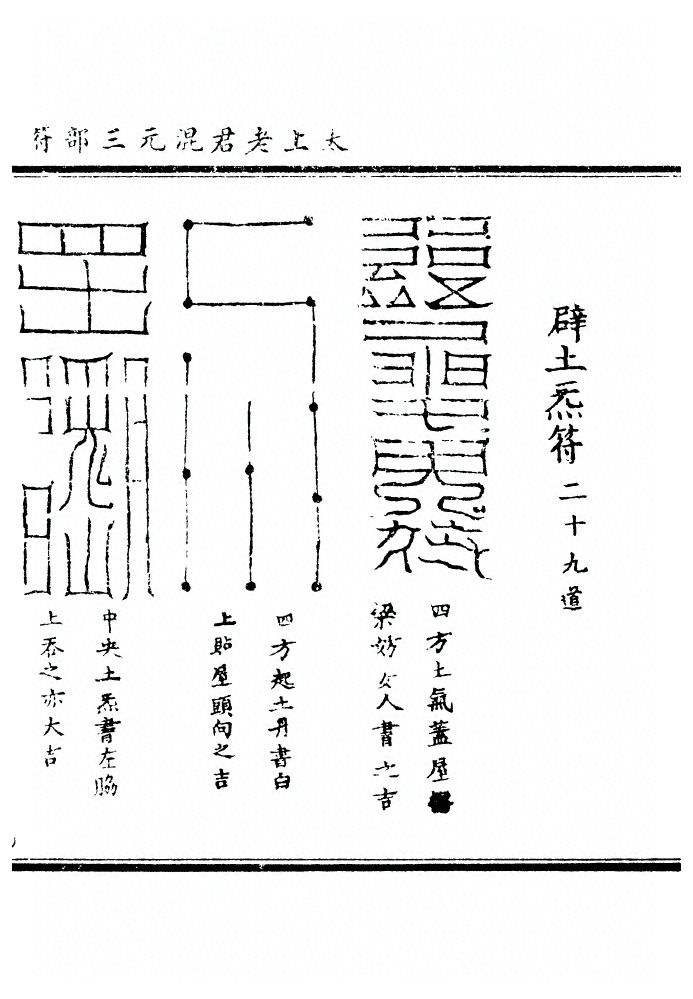 太上老君混元三部符
辟土炁符二十九道
四方土氣蓋屋
梁妙女人書之吉
四方起土丹書白
上貼屋頭向之吉
中央土炁書左脇
上吞之亦大吉